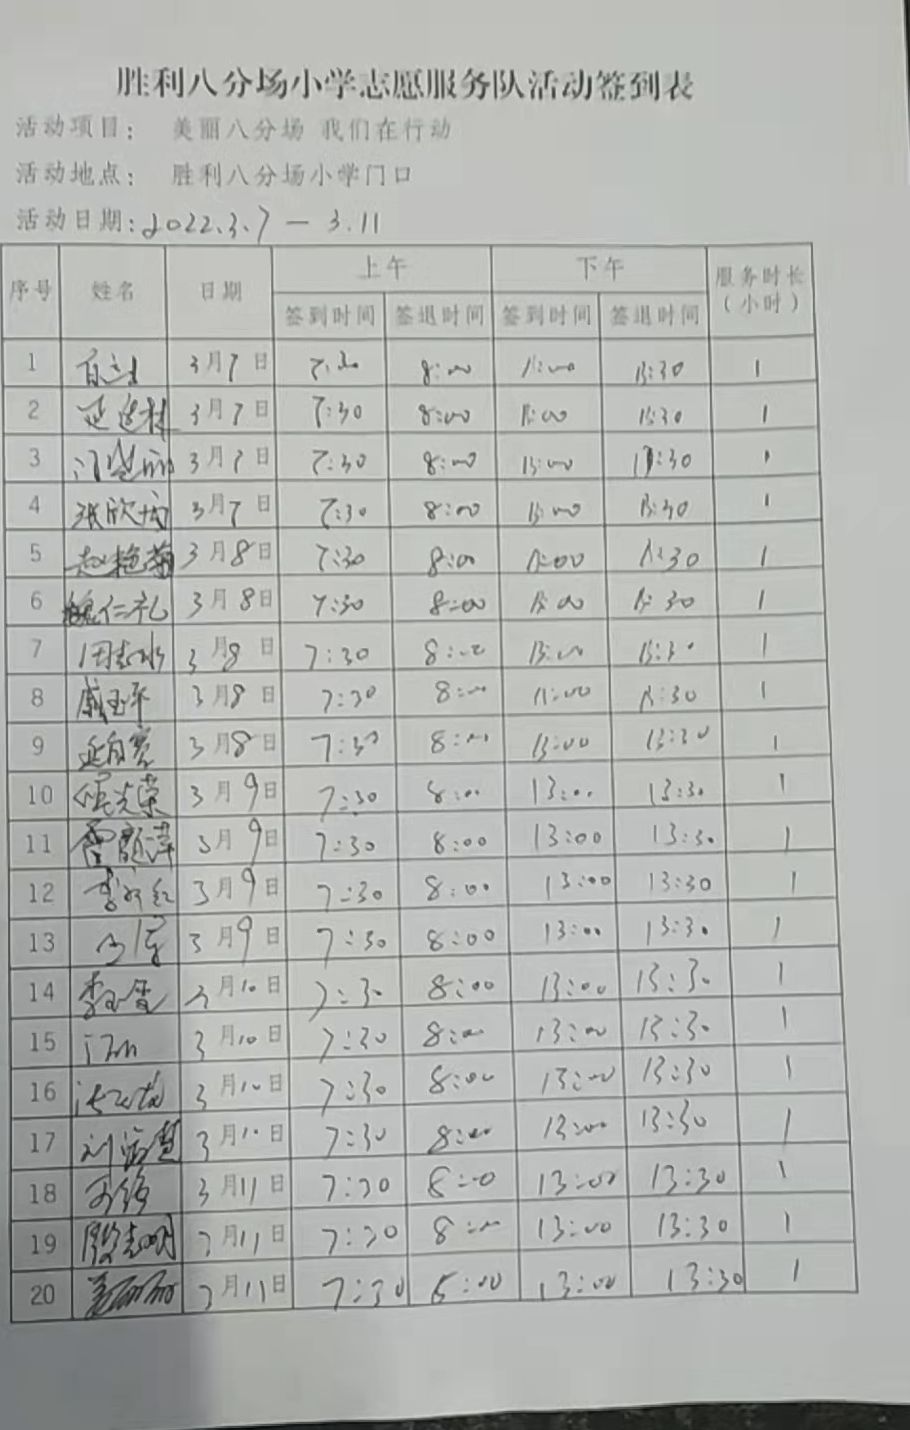 胜利八分场小学志愿服务队活动签到表
活动项目： 美丽八分场 我们在行动
活动地点： 胜利八分场小学门口
活动日期:2022.3.7 — 3.11
序号 姓名 日期 上午 下午 服务时长（小时）
签到时间 签退时间 签到时间 签退时间
1 3月7日 7:30 8:00 13:00 13:30 1
2 3月7日 7:30 8:00 13:00 13:30 1
3 3月7日 7:30 8:00 13:00 13:30 1
4 张欣 3月7日 7:30 8:00 13:00 13:30 1
5 赵艳菊 3月8日 7:30 8:00 13:00 13:30 1
6 魏仁礼 3月8日 7:30 8:00 13:00 13:30 1
7 3月8日 7:30 8:00 13:00 13:30 1
8 戚玉平 3月8日 7:30 8:00 13:00 13:30 1
9 3月8日 7:30 8:00 13:00 13:30 1
10 3月9日 7:30 8:00 13:00 13:30 1
11 3月9日 7:30 8:00 13:00 13:30 1
12 3月9日 7:30 8:00 13:00 13:30 1
13 3月9日 7:30 8:00 13:00 13:30 1
14 3月10日 7:30 8:00 13:00 13:30 1
15 3月10日 7:30 8:00 13:00 13:30 1
16 3月10日 7:30 8:00 13:00 13:30 1
17 3月10日 7:30 8:00 13:00 13:30 1
18 3月11日 7:30 8:00 13:00 13:30 1
19 殷志明 3月11日 7:30 8:00 13:00 13:30 1
20 3月11日 7:30 8:00 13:00 13:30 1